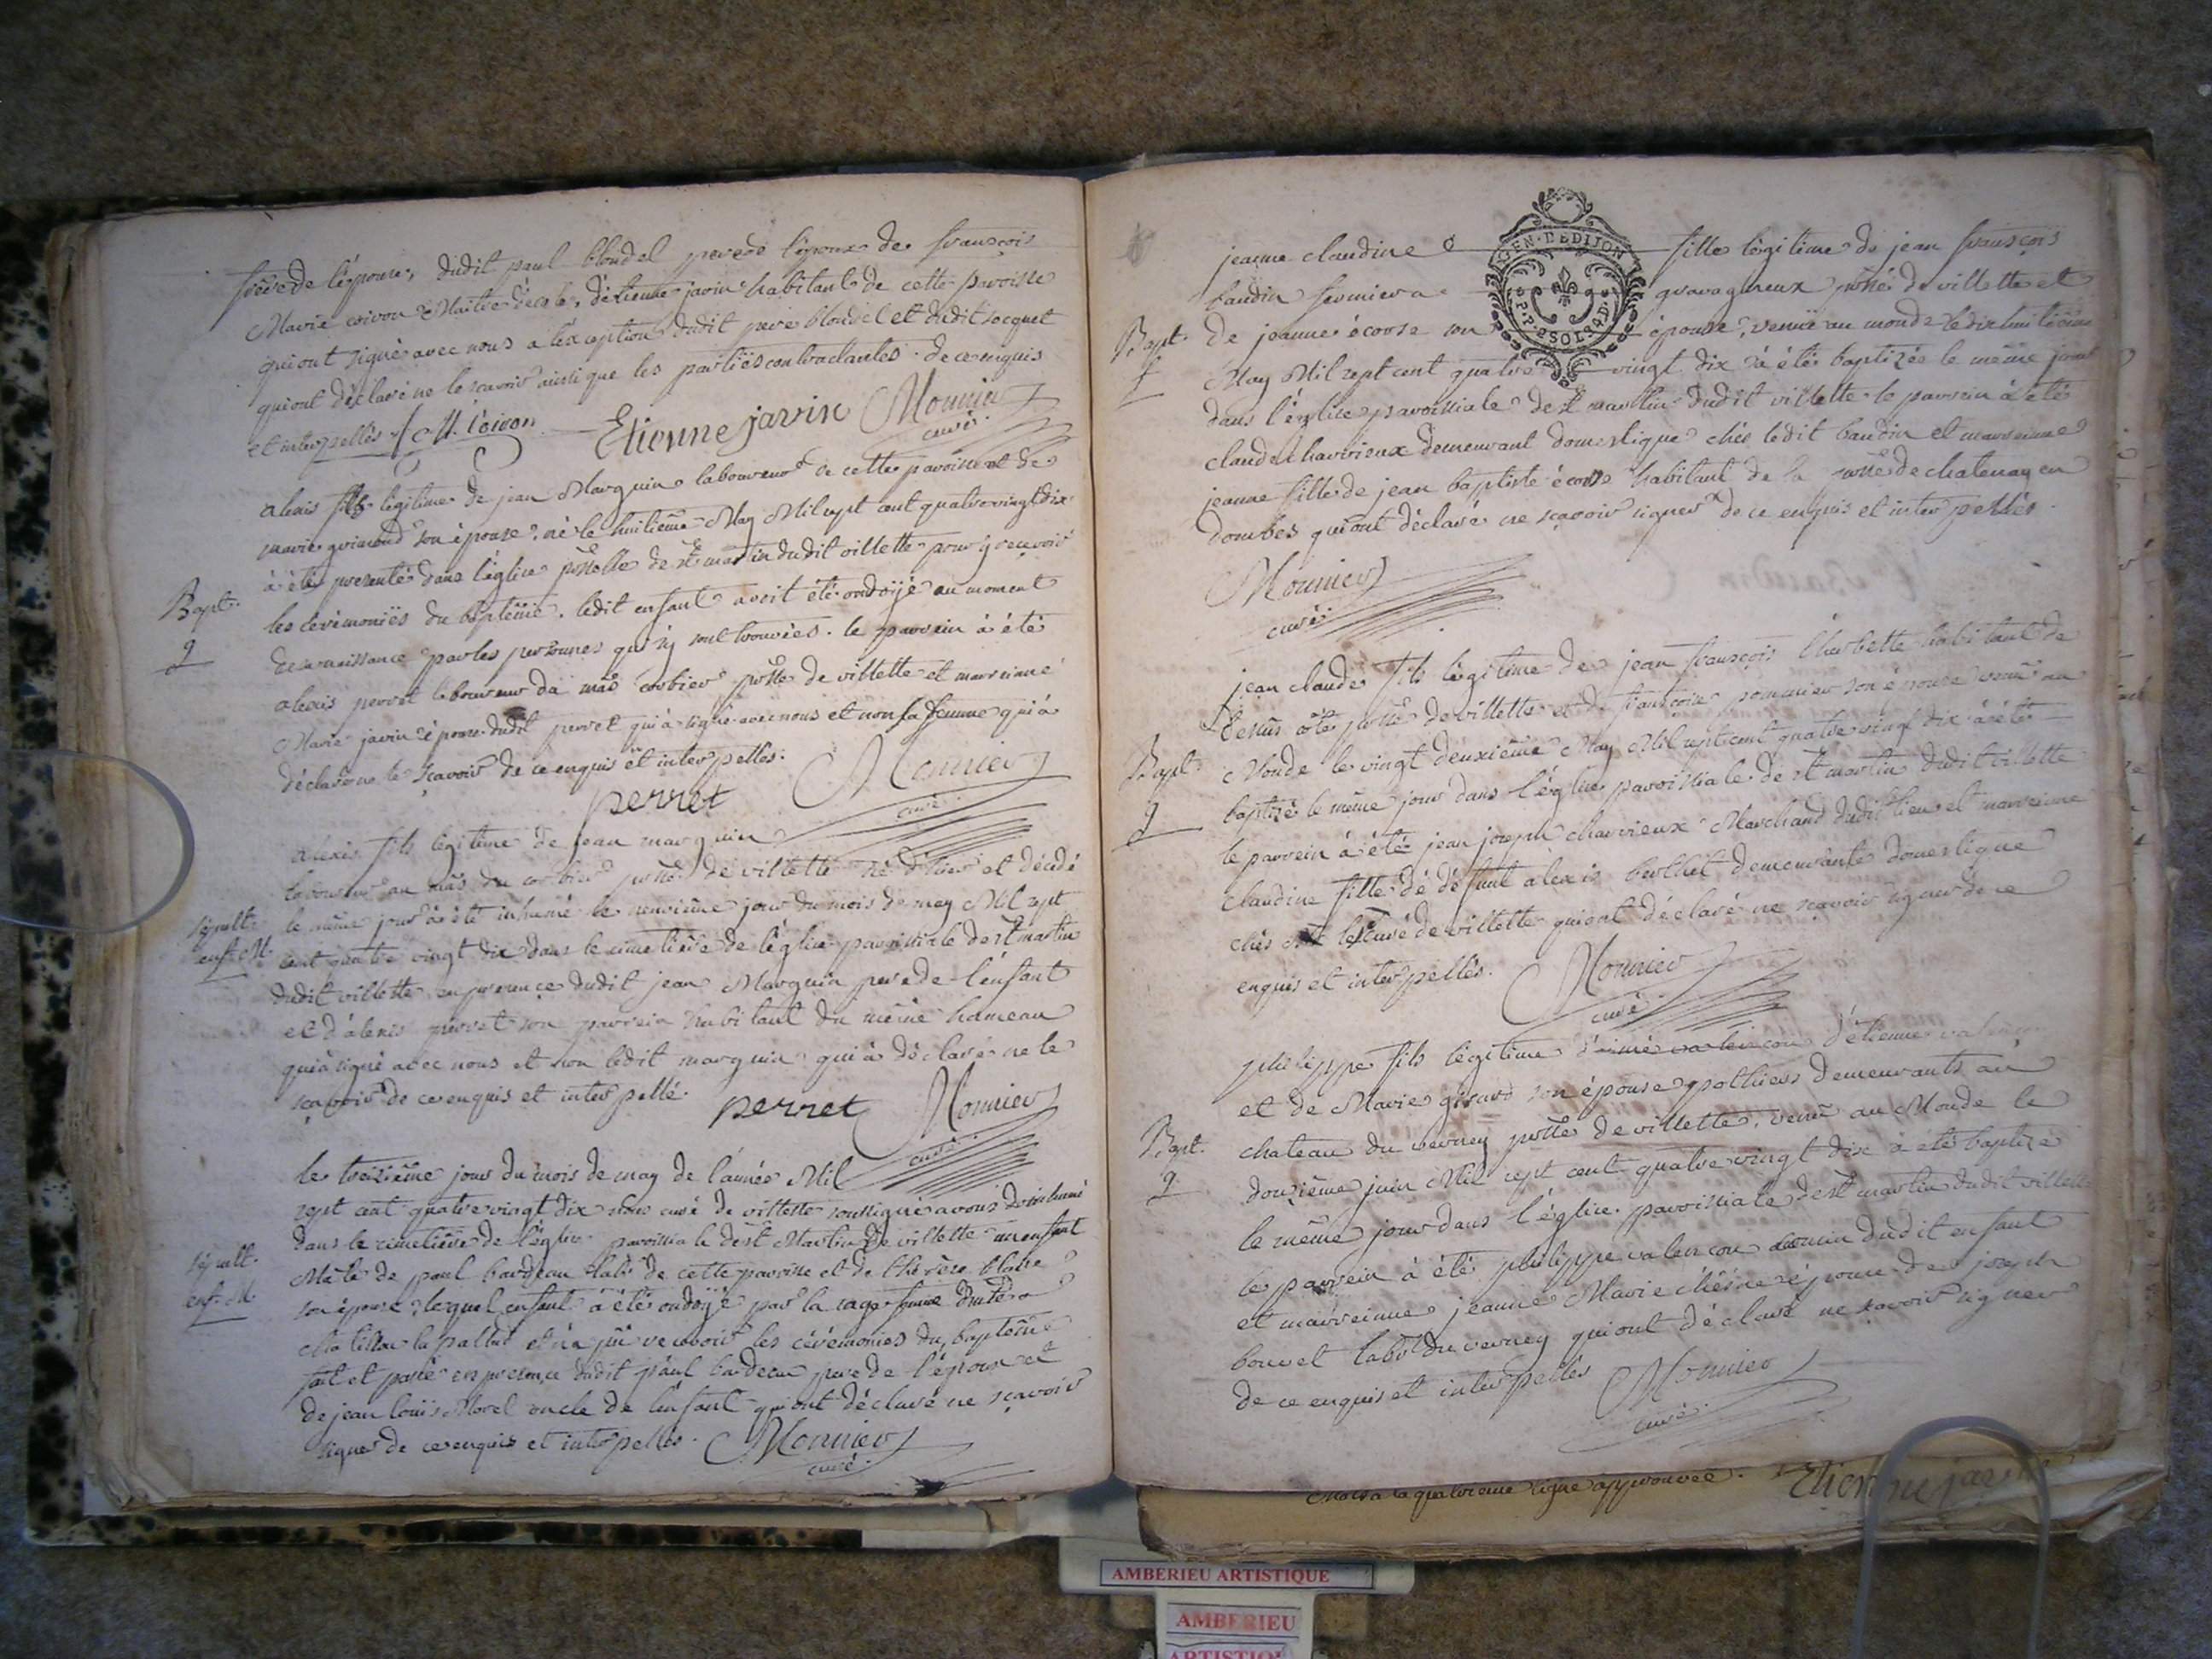 frère de l'épouse, dudit paul blondel pere de l'épouse de françois
Marie coivon Maitre d'école, d'étienne javin habitants de cette paroisse
qui ont signé avec nous a l'exception dudit pere blondel et dudit jocquet
qui ont déclaré ne le scavoir ainsi que les partiës contractantes de ce enquis
et interpellés f. M. Coivon Etienne javin Monnier
curé.
alexis fils legitime de jean Marguin laboureur de cette paroisse et de
marie guimond son épouse, né le huitième May Mil sept cent quatre vingt dix
à été presenté dans l'église pslle de st martin dudit villette pour y recevoir
Bapt. les cérémoniës du baptême. ledit enfant avoit été ondoÿé au moment
g de naissance par les personnes qui s'y sont trouvées. le parrein à été
alexis perret laboureur du mas corbier psse de villette et marreinne
Marie javin épouse dudit perret qui à signé avec nous et non sa femme qui à
déclaré ne le sçavoir de ce enquis et interpellés.
perret Monnier
curé.
alexis fils legitime de jean marguin
laboureur au mas du corbier psse de villette né d'hier et décédé
Sépult. le même jour à été inhumé le neuvième jour du mois de may Mil sept
enf. M. cent quatre vingt dix dans le cimetière de l'église paroissiale de st martin
dudit villette en presence dudit jean Marguin pere de l'enfant
et d'alexis perret son parrein habitant du même hameau
qui à signé avec nous et non ledit marguin qui à déclaré ne le
sçavoir de ce enquis et interpellé.
perret Monnier
curé
le treizième jour du mois de may de l'année Mil
sept cent quatre vingt dix nous curé de villette soussigné avons inhumé
dans le cimetière de l'église paroissiale de st Martin de villette un enfant
Sépult. Mâle de paul bardeau labr de cette paroisse et de thérèse blanc
enf. M. son épouse, lequel enfant à été ondoÿé par la sage femme
et n'a pû recevoir les cérémonies du baptême
fait et passé en presence dudit paul bardeau pere de l'époux et
de jean louis Morel oncle de l'enfant qui ont déclaré ne sçavoir
signer de ce enquis et interpellés. Monnier
curé.
jeanne claudine fille légitime de jean françois
baudin fermier a gravagneux psse de villette et
GEN. DE DIJON
P.P. 2 SOLS 4 D.
Bapt. de jeanne écorse son épouse, venuë au monde le dix huitième
f May Mil sept cent quatre vingt dix à été baptizée le même jour
dans l'église paroissiale de st martin dudit villette le parrein à été
claude charvieux demeurant domestique chés ledit baudin et marreinne
jeanne fille de jean baptiste écorse habitant de la psse de chatenay en
dombes qui ont déclaré ne sçavoir signer de ce enquis et interpellés.
Monnier
curé
jean claude fils légitime de jean françois l'herbette habitant de
dessus côte psse de villette et de françoise pommier son épouse venu au
Bapt. Monde le vingt deuxième May Mil sept cent quatre vingt dix à été
g baptizé le même jour dans l'église paroissiale de st martin dudit villette
le parrein à été jean joseph charvieux Marchand dudit lieu et marreinne
claudine fille de défunt alexis berthet demeurante domestique
chés le curé de villette qui ont déclaré ne sçavoir signer de ce
enquis et interpellés. Monnier
curé
philippe fils légitime d'étienne valençon
et de Marie girard son épouse pothiers demeurants au
Bapt. chateau du verney psse de villette, venu au Monde le
g douzième juin Mil sept cent quatre vingt dix à été baptizé
le même jour dans l'église paroissiale de st martin dudit villette
le parrein à été philippe valençon cousin dudit enfant
et marreinne jeanne Marie chêne épouse de joseph
bouvet labr du verney qui ont déclaré ne sçavoir signer
de ce enquis et interpellés Monnier
curé.
a la quatrieme ligne approuvée. Etienne javin
AMBERIEU ARTISTIQUE
AMBERIEU
ARTISTIQUE